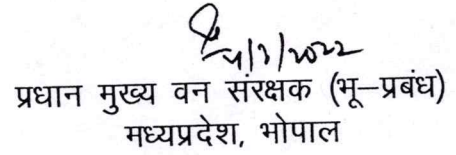 4/3/2022
प्रधान मुख्य वन संरक्षक (भू–प्रबंध)
मध्यप्रदेश, भोपाल